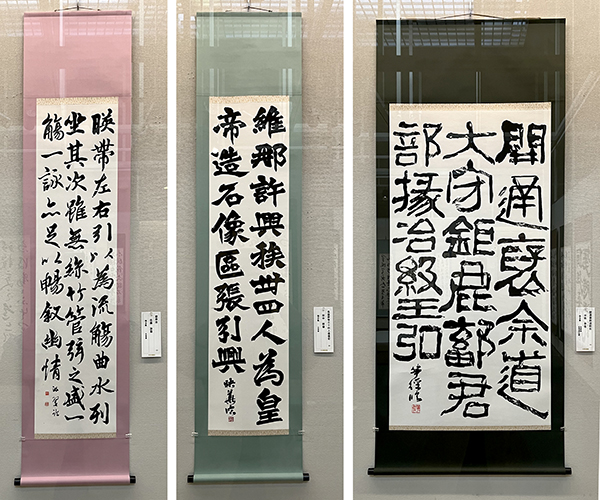 暎帶左右引以為流觴曲水列
坐其次雖無絲竹管弦之盛一
觴一詠亦足以暢叙幽情
維那許興族卌四人為皇
帝造石像區張引興
開通褒余道
大守鉅鹿鄐君
部掾治級王弘